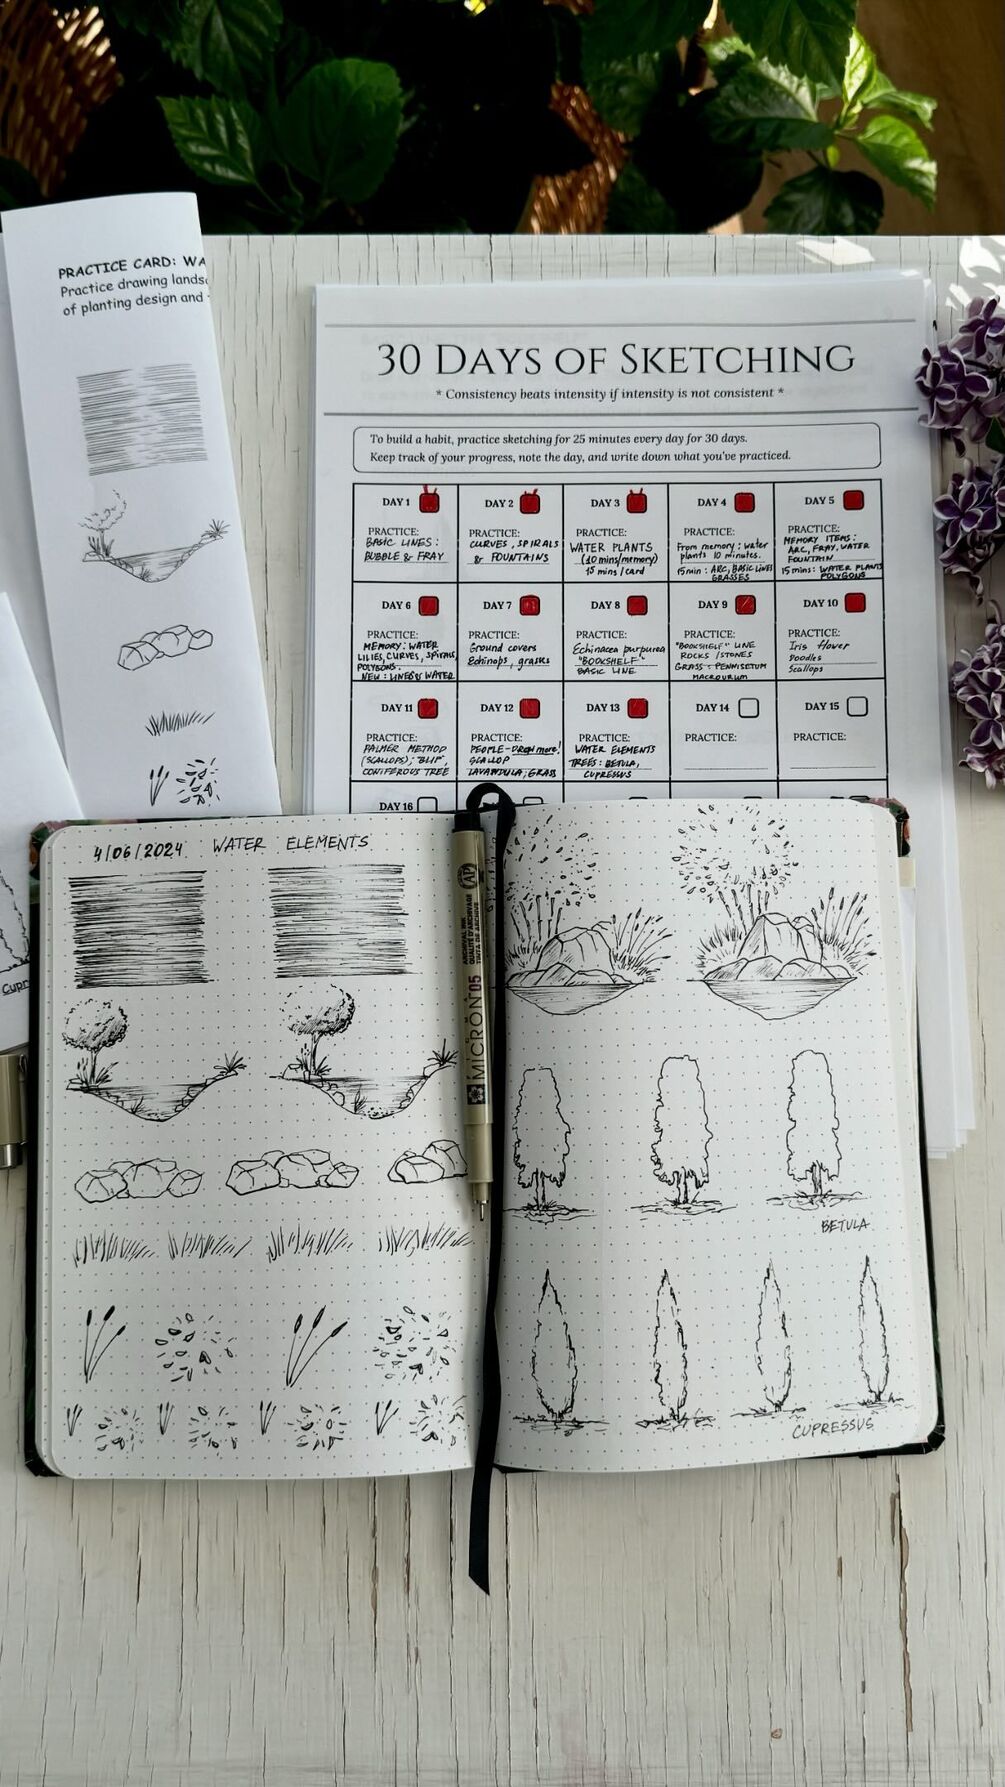 PRACTICE CARD: WA
Practice drawing landsc
of planting design and
30 DAYS OF SKETCHING
* Consistency beats intensity if intensity is not consistent *
To build a habit, practice sketching for 25 minutes every day for 30 days.
Keep track of your progress, note the day, and write down what you've practiced.
DAY 1
PRACTICE:
BASIC LINES:
BUBBLE & FRAY
DAY 2
PRACTICE:
CURVES, SPIRALS
& FOUNTAINS
DAY 3
PRACTICE:
WATER PLANTS
(10 mins/memory)
15 mins/card
DAY 4
PRACTICE:
From memory: water
plants 10 minutes.
15min: ARC, BASIC LINES
GRASSES
DAY 5
PRACTICE:
MEMORY ITEMS:
ARC, FRAY, WATER
FOUNTAIN
15 mins: WATER PLANTS
POLYGONS
DAY 6
PRACTICE:
MEMORY: WATER
LILIES, CURVES, SPIRALS,
POLYGONS.
NEW: LINES & WATER
DAY 7
PRACTICE:
Ground covers
Echinops, grasses
DAY 8
PRACTICE:
Echinacea purpurea
"BOOKSHELF"
BASIC LINE
DAY 9
PRACTICE:
"BOOKSHELF" LINE
ROCKS / STONES
GRASS: PENNISETUM
MACROURUM
DAY 10
PRACTICE:
Iris flower
Doodles
Scallops
DAY 11
PRACTICE:
PALMER METHOD
(SCALLOPS); "BLIP",
CONIFEROUS TREE
DAY 12
PRACTICE:
PEOPLE - DRAW more!
SCALLOP
LAVANDULA, GRASS
DAY 13
PRACTICE:
WATER ELEMENTS
TREES: BETULA,
CUPRESSUS
DAY 14
PRACTICE:
DAY 15
PRACTICE:
DAY 16
4/06/2024 WATER ELEMENTS
Cupr
MICRON 05
ARCHIVAL INK
QUALITÉ D'ARCHIVAGE
TINTA DE ARCHIVE
AP
BETULA
CUPRESSUS